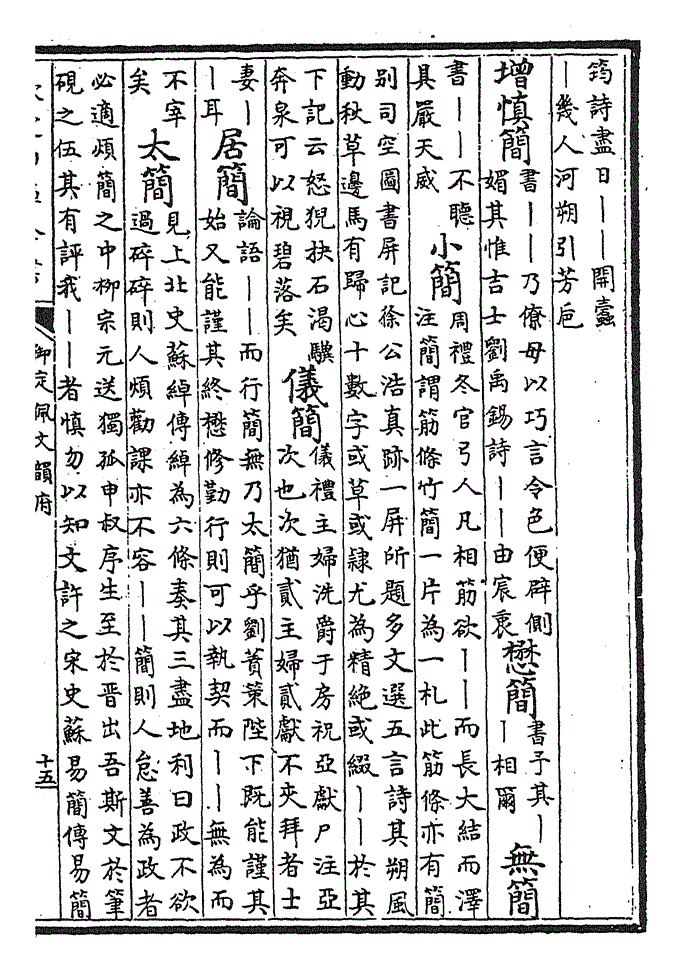 筠詩盡日｜｜開蠹
｜幾人河朔引芳卮
增慎簡
書｜｜乃僚毋以巧言令色便辟側
媚其惟吉士劉禹錫詩｜｜由宸衷
懋簡
書予其｜
｜相爾
無簡
書｜｜不聽
具嚴天威
小簡
周禮冬官弓人凡相筋欲｜｜而長大結而澤
注簡謂筋條竹簡一片為一札此筋條亦有簡
别司空圖書屏記徐公浩真跡一屏所題多文選五言詩其朔風
動秋草邊馬有歸心十數字或草或隸尤為精絶或綴｜｜於其
下記云怒猊抉石渴驥
奔泉可以視碧落矣
儀簡
儀禮主婦洗爵于房祝亞獻尸注亞
次也次猶貳主婦貳獻不夾拜者士
妻｜
｜耳
居簡
論語｜｜而行簡無乃太簡乎劉蕡策陛下既能謹其
始又能謹其終懋修勤行則可以執契而｜｜無為而
不宰
矣
太簡
見上北史蘇綽傳綽為六條奏其三盡地利曰政不欲
過碎碎則人煩勸課亦不容｜｜簡則人怠善為政者
必適煩簡之中柳宗元送獨孤申叔序生至於晋出吾斯文於筆
硯之伍其有評我｜｜者慎勿以知文許之宋史蘇易簡傳易簡
御定佩文韻府
十五